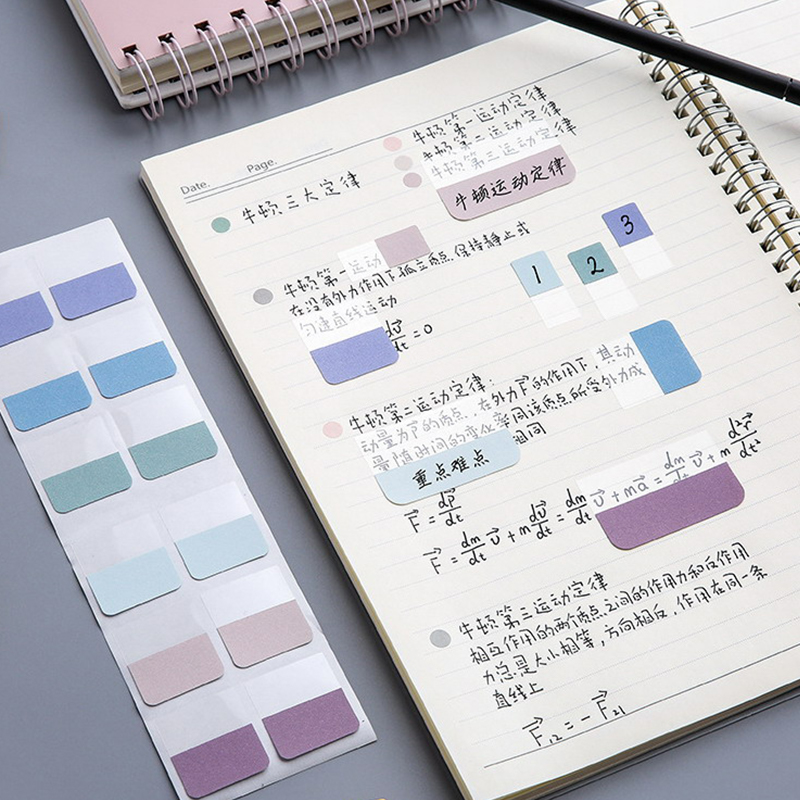 Date. Page.
牛顿第一运动定律
牛顿第二运动定律
牛顿第三运动定律
牛顿运动定律
牛顿三大定律
1 2 3
牛顿第一运动
在没有外力作用下孤立质点保持静止或
匀速直线运动
dv⃗/dt = 0
牛顿第二运动定律:
动量为P⃗的质点,在外力F⃗的作用下,其动
量随时间的变化率同该质点所受外力成
相同
重点难点
F⃗ = dP⃗/dt
F⃗ = dm/dt v⃗ + m dv⃗/dt = dm/dt v⃗ + ma⃗ = dm/dt v⃗ + m d²r⃗/dt²
牛顿第三运动定律
相互作用的两个质点之间的作用力和反作用
力总是大小相等,方向相反,作用在同一条
直线上
F⃗₁₂ = -F⃗₂₁